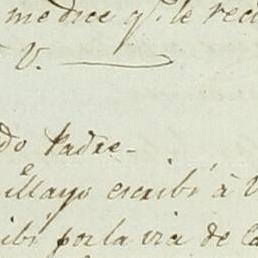 me dice q.ᵉ le reci
V.
do Padre-
de Mayo escribí à V
ibí por la via de Ca